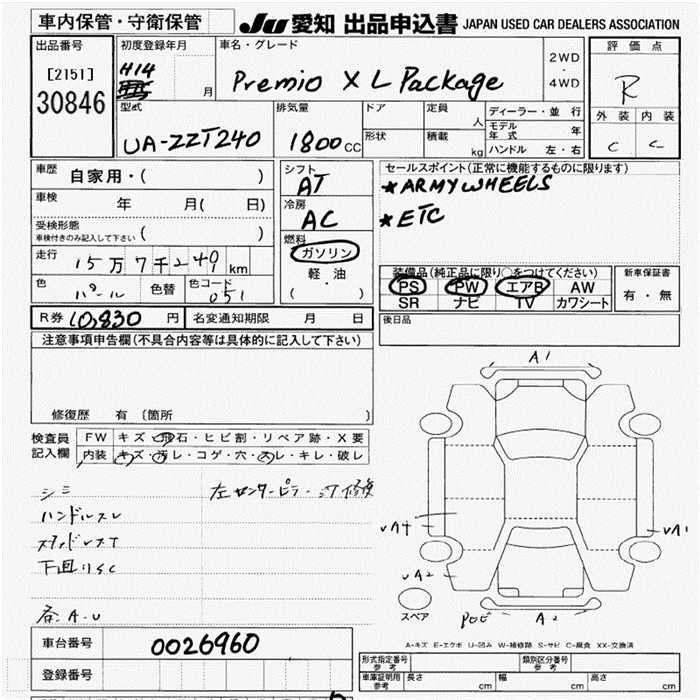 車内保管・守衛保管
JU 愛知 出品申込書 JAPAN USED CAR DEALERS ASSOCIATION
出品番号
[2151]
30846
初度登録年月
H14
月
車名・グレード
Premio X L Package
2WD
・
4WD
評価点
R
外装 内装
C C
型式
UA-ZZT240
排気量
1800 CC
ドア
形状
定員
人
積載
kg
ディーラー・並行
モデル年式 年
ハンドル 左・右
車歴
自家用・( )
車検
年 月( 日)
受検形態
車検付きのみ記入して下さい ( )
走行
15万7千249 km
色
パール
色替
色コード
051
シフト
AT
冷房
AC
燃料
ガソリン
・
軽油
・
( )
セールスポイント(正常に機能するものに限ります)
★ARMY WHEELS
★ETC
装備品(純正品に限り○をつけてください)
PS PW エアB AW
SR ナビ TV カワシート
新車保証書
有・無
後日品
R券 10,830 円 名変通知期限 月 日
注意事項申告欄(不具合内容等は具体的に記入して下さい)
修復歴 有〔箇所 〕
検査員
記入欄
FW キズ・飛石・ヒビ割・リペア跡・X要
内装 キズ・汚レ・コゲ・穴・スレ・キレ・破レ
シミ
ハンドルスレ
下回りSC
各A.U
A1
A4
A1
A2
A2
スペア
A-キズ E-エクボ U-凹み W-補修跡 S-サビ C-腐食 XX-交換済
車台番号
0026960
登録番号
形式指定番号
参考
類別区分番号
参考
車庫証明用
参考
長さ cm 幅 cm 高さ cm